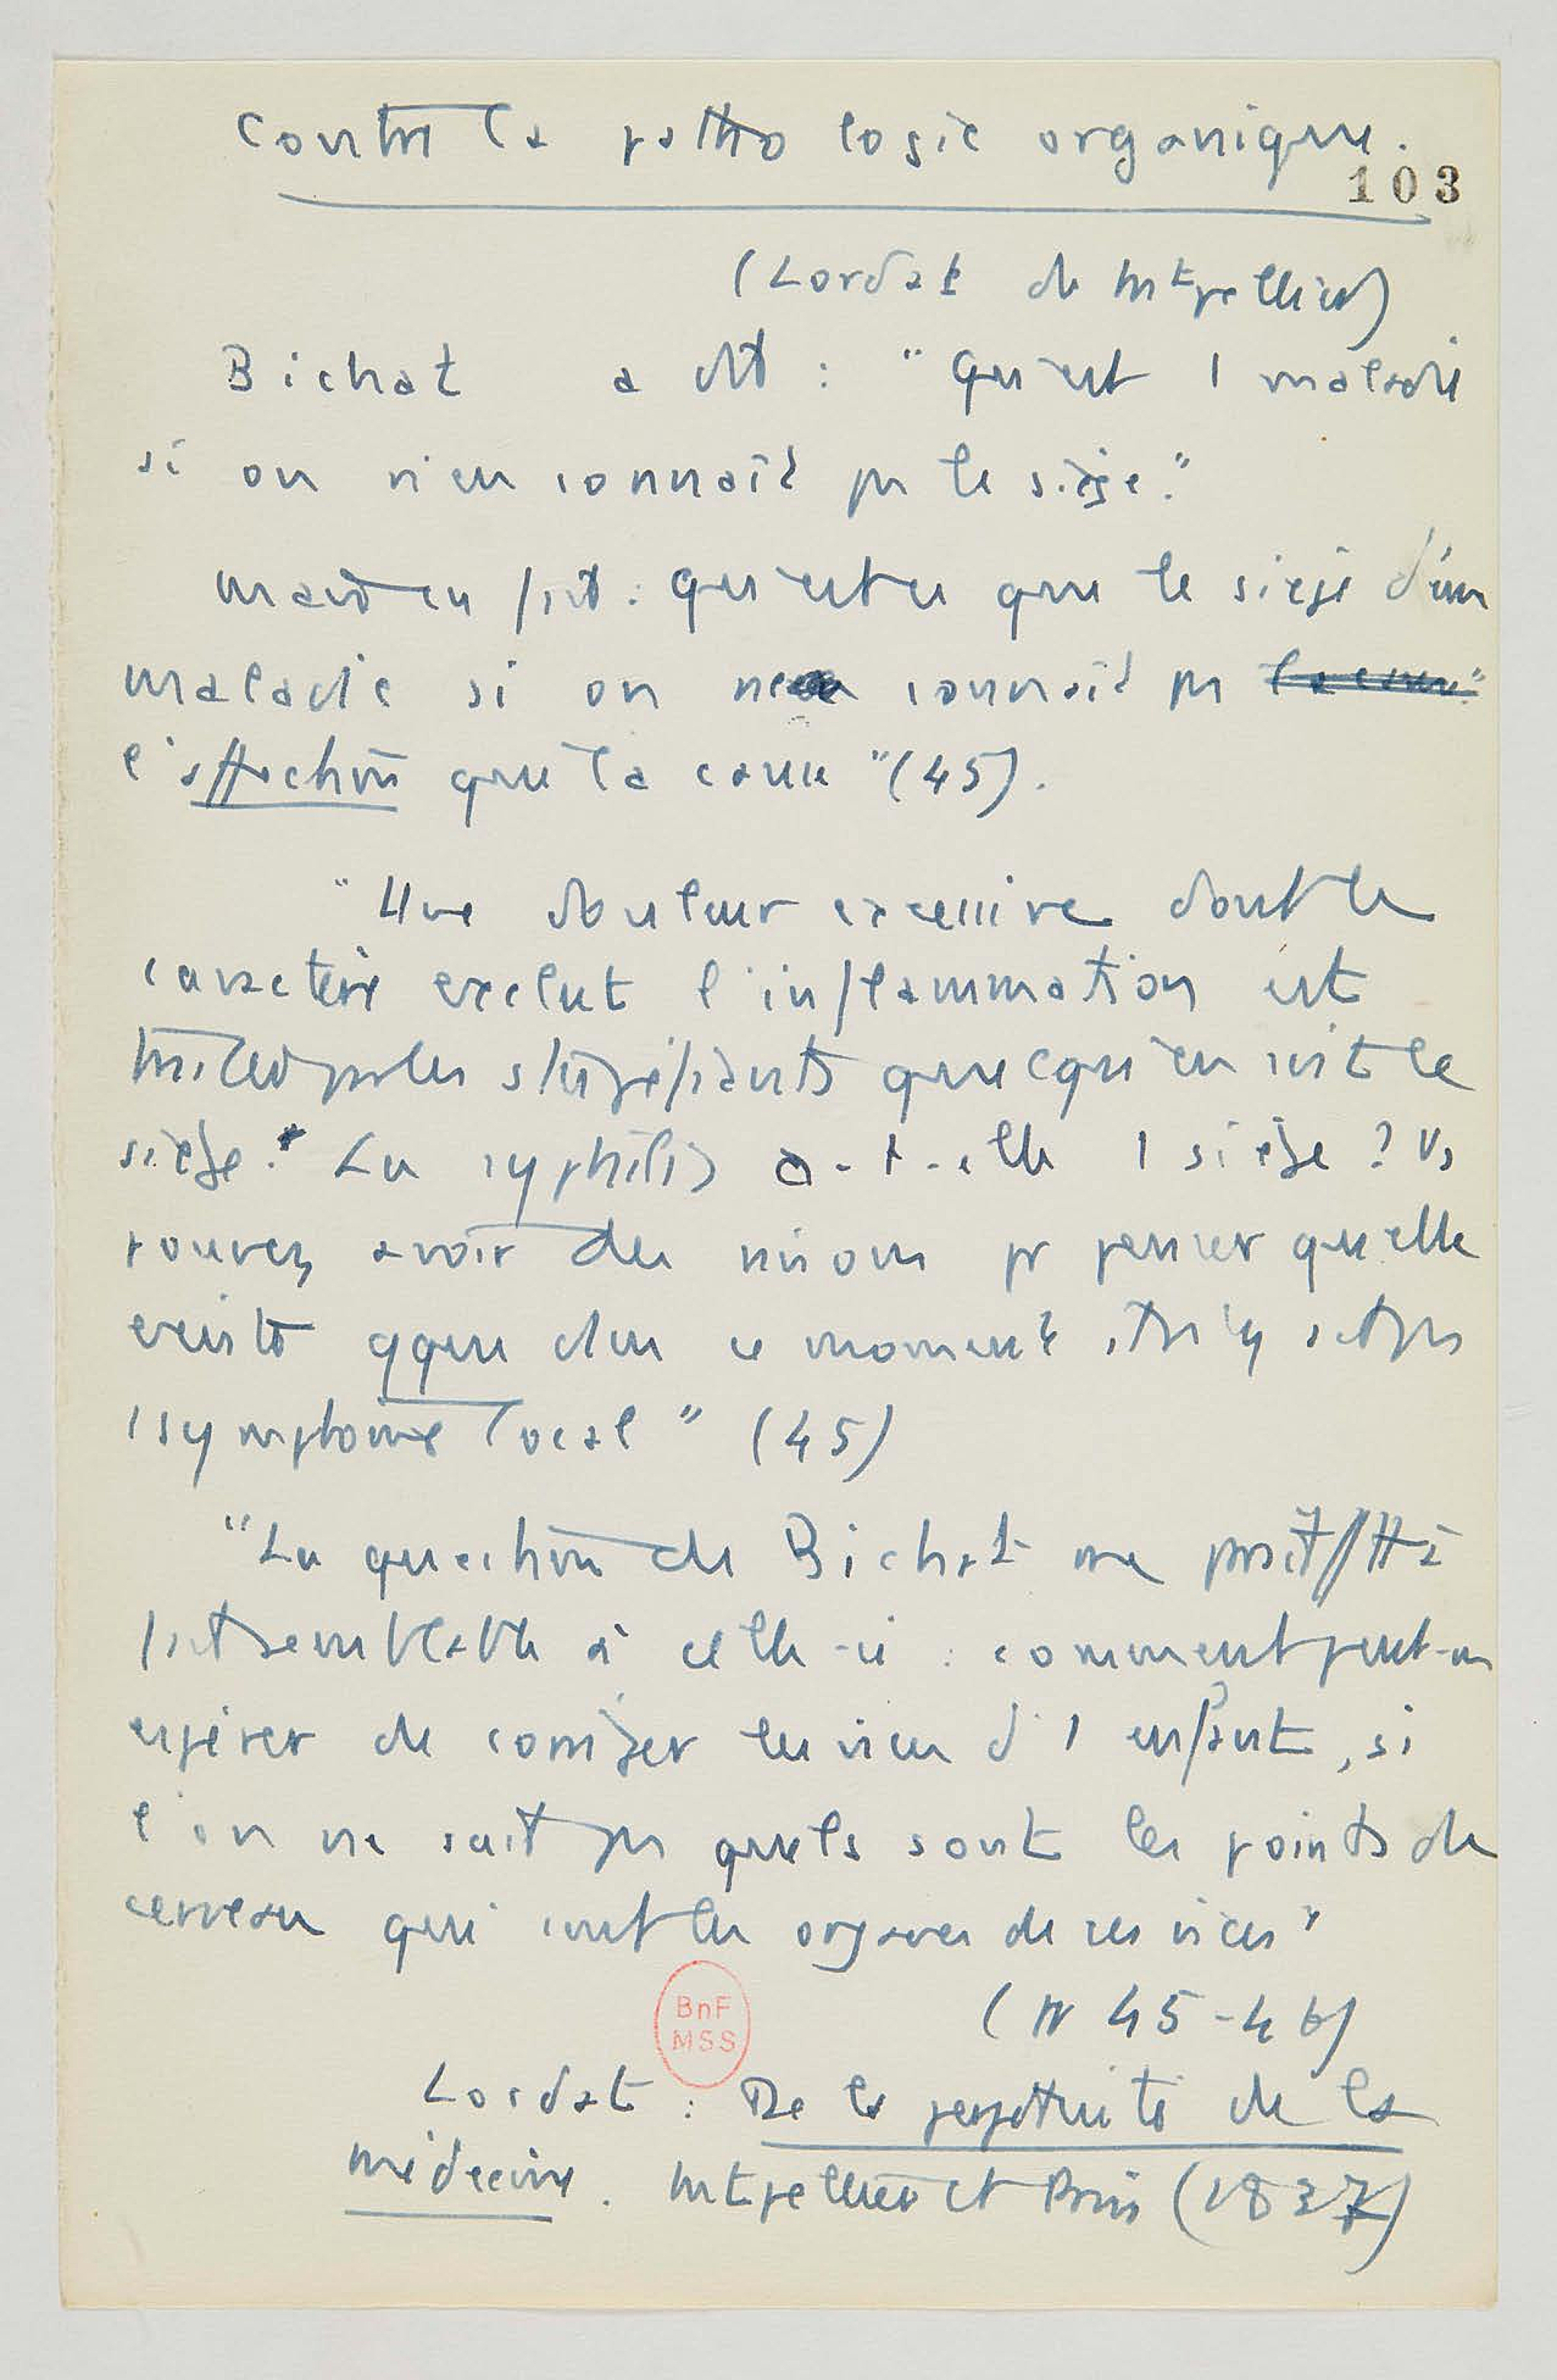 Contre la pathologie organique.
103
(Lordat de Mtpellier)
Bichat a dit : "Qu'est 1 maladie
si on n'en connaît pas le siège."
Mais en fait : qu'est-ce que le siège d'une
maladie si on ne connaît pas la cause"
l'affection que la cause" (45).
"Une douleur excessive dont le
caractère exclut l'inflammation est
traitée par les stupéfiants quel qu'en soit le
siège." La syphilis a-t-elle 1 siège ? Vs
pouvez avoir des raisons pr penser qu'elle
existe qque dans ce moment il n'y ait pas
1 symptôme local" (45)
"La question de Bichat me paraît
fait semblable à celle-ci : comment peut-on
espérer de corriger les vices d'1 enfant, si
l'on ne sait pas quels sont les points du
cerveau qui sont les organes de ces vices"
(45-46)
Lordat : De la perpétuité de la
médecine. Mtpellier et Paris (1837)
BnF
MSS